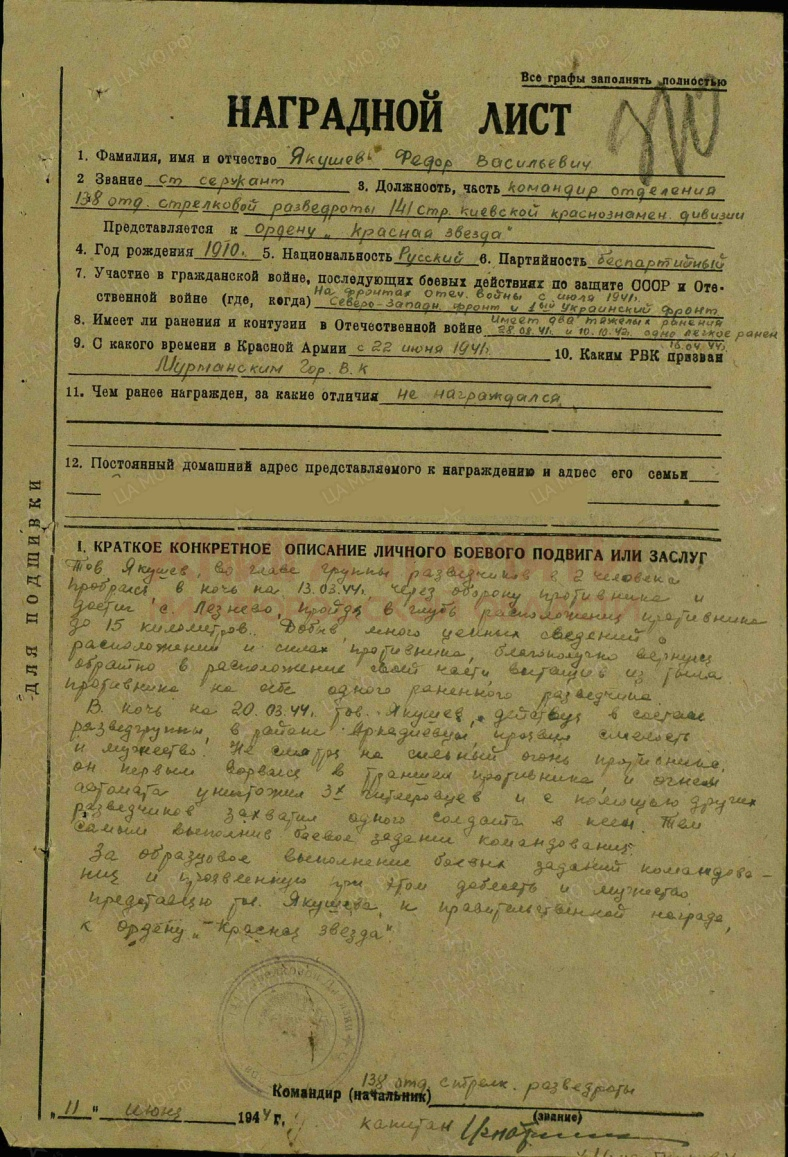 Все графы заполнять полностью
НАГРАДНОЙ ЛИСТ
1. Фамилия, имя и отчество Якушевъ Федор Васильевич
2 Звание Ст сержант 3. Должность, часть командир отделения
138 отд. стрелковой разведроты 141 стр. киевской краснознамен. дивизии
Представляется к Ордену „Красная звезда"
4. Год рождения 1910г. 5. Национальность Русский 6. Партийность беспартийный
7. Участие в гражданской войне, последующих боевых действиях по защите СССР и Оте-
ственной войне (где, когда) На фронтах отеч. войны с июля 1941г.
Северо-Западн. фронт и 1ый Украинский фронт
8. Имеет ли ранения и контузии в Отечественной войне Имеет два тяжелых ранения
28.08.41г. и 10.10.42г. одно легкое ранен
16.04.44г.
9. С какого времени в Красной Армии с 22 июня 1941г. 10. Каким РВК призван
Мурманским Гор. В.К
11. Чем ранее награжден, за какие отличия не награждался
12. Постоянный домашний адрес представляемого к награждению и адрес его семьи
I. КРАТКОЕ КОНКРЕТНОЕ ОПИСАНИЕ ЛИЧНОГО БОЕВОГО ПОДВИГА ИЛИ ЗАСЛУГ
Тов Якушев, во главе группы разведчиков в 2 человека
пробрался в ночь на 13.03.44г. через оборону противника и
достиг с Лезнево, пройдя в глубь расположения противника
до 15 километров. Добыв много ценных сведений о
расположении и силах противника, благополучно вернулся
обратно в расположение своей части, вытащив из тыла
противника на себе одного раненного разведчика.
В ночь на 20.03.44г. тов. Якушев, действуя в составе
разведгруппы, в районе Аркадиевцы, проявил смелость
и мужество. Не смотря на сильный огонь противника,
он первым ворвался в траншеи противника, и огнем
автомата уничтожил 3х гитлеровцев и с помощью других
разведчиков захватил одного солдата в плен. Тем
самым выполнив боевое задание командования.
За образцовое выполнение боевых заданий командова-
ния и проявленную при этом доблесть и мужество
представляю тов. Якушева, к правительственной награде,
к ордену „Красная звезда".
для подшивки
138 отд. стрелк. разведроты
Командир (начальник)
(звание)
„11" июня 1944 г.
капитан